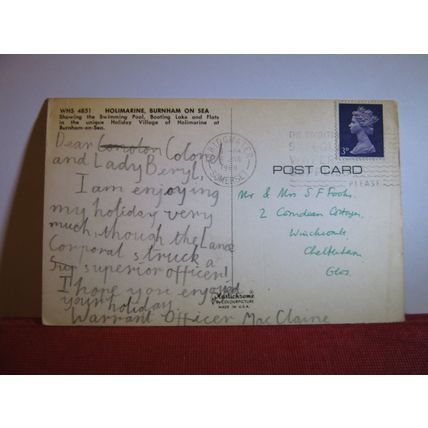 WHS 4851 HOLIMARINE, BURNHAM ON SEA
Showing the Swimming Pool, Boating Lake and Flats
in the unique Holiday Village of Holimarine at
Burnham-on-Sea.
Dear Colonel
and Lady Beryl,
I am enjoying
my holiday very
much, though the Lance
Corporal struck a
superior officer!
I hope you enjoyed
your holiday.
Warrant Officer MacClaine
BRIDGWATER
SOMERSET
THE
PLEASE
3D
POST CARD
Mr & Mrs S F Fooks,
2 Cottages,
Winchcombe,
Cheltenham,
Glos.
Plastichrome
COLOURPICTURE
MADE IN U.S.A.